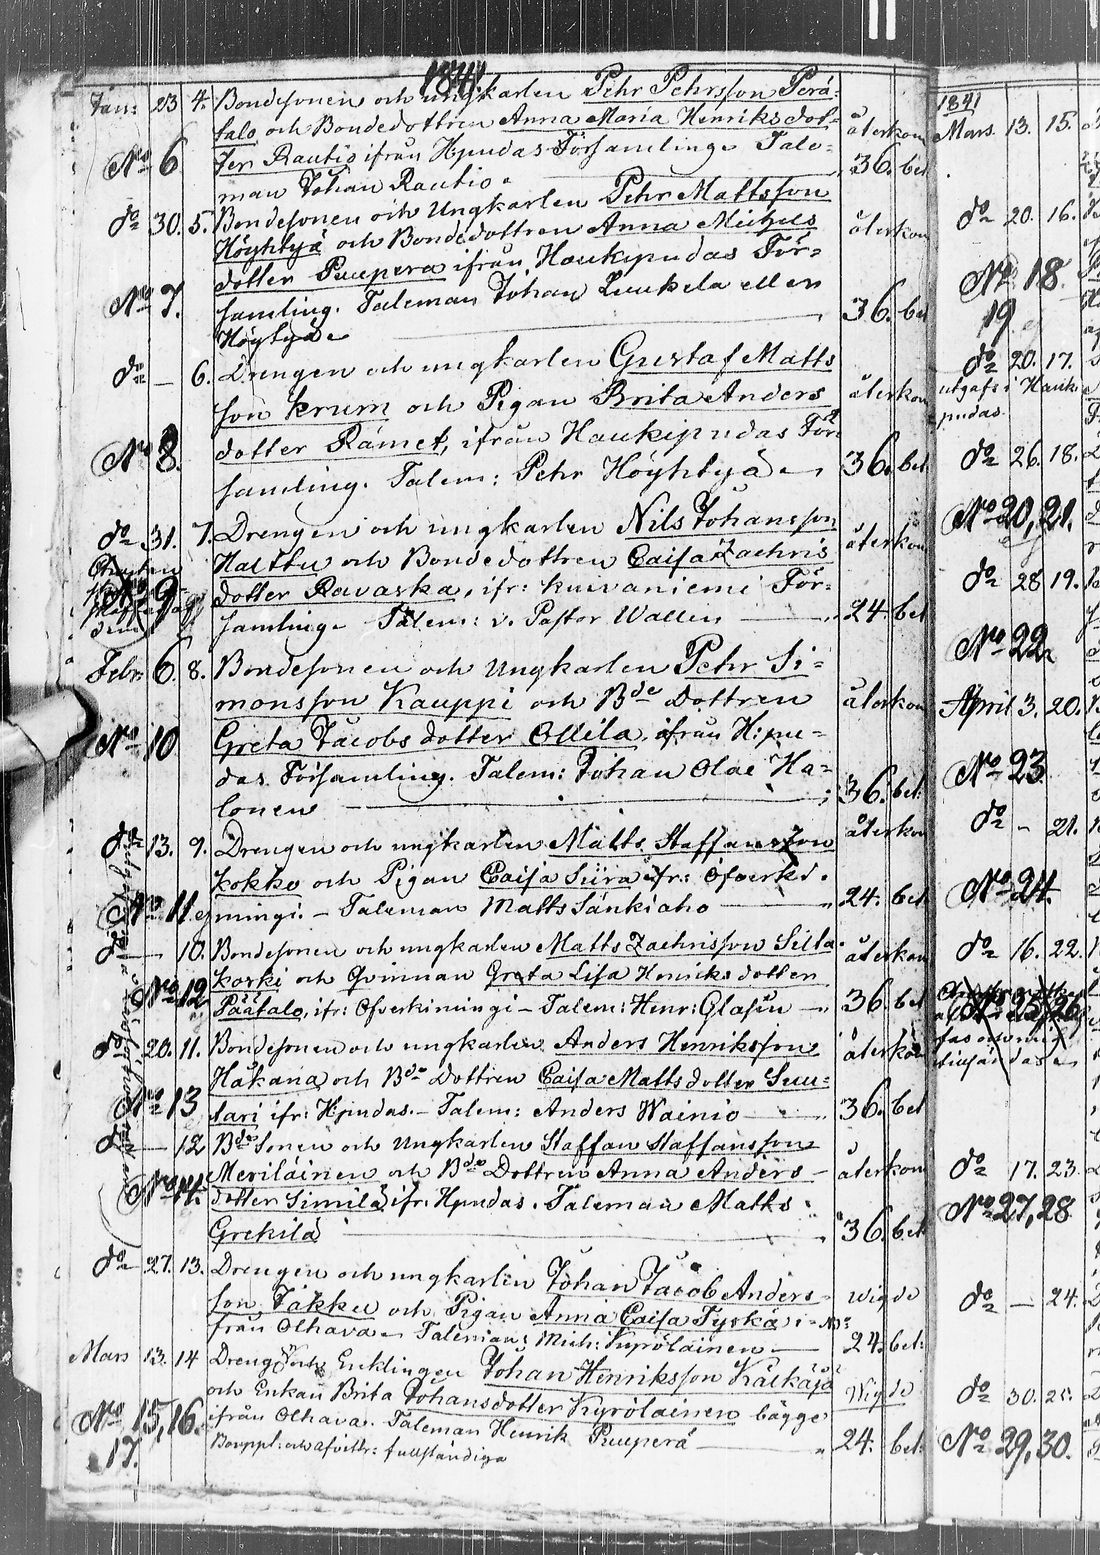 1841
Jan: 23 4. Bondesonen och ungkarlen Pehr Pehrsson Perä-
talo och Bondedottren Anna Maria Henriksdot- återkom
No 6 ter Rautio ifrån Hpudas Församling. Tale- 36. bet
man Johan Rautio.
do 30. 5. Bondesonen och Ungkarlen Pehr Mattsson
Höyhtyä och Bondedottren Anna Michels återkom
dotter Puupera ifrån Haukipudas För-
No 7. samling. Taleman Johan Luukela eller 36. bet
Höyhtyä
do — 6. Drengen och ungkarlen Gustaf Matts
son Krum och Pigan Brita Anders återkom
No 8. dotter Rämet, ifrån Haukipudas För
samling. Talem: Pehr Höyhtyä 36. bet
do 31. 7. Drengen och ungkarlen Nils Johansson återkom
Haettu och Bondedottren Caisa Zachris
No 9. dotter Ravaska, ifr: Kuivaniemi För-
samling. Talem: v. Pastor Wallin — 24. bet
Febr 6. 8. Bondesonen och Ungkarlen Pehr Si-
monsson Kauppi och Bde Dottren återkom
No 10 Greta Jacobsdotter Ollila, ifrån Hpu-
das Församling. Talem: Johan Olai Ha-
lonen — 36. bet:
do 13. 9. Drengen och ungkarlen Matts Staffansson återkom
Kokko och Pigan Caisa Siira ifr: Öfverki-
No 11. mingi. — Taleman Matts Sänkiaho — 24. bet
do — 10. Bondesonen och ungkarlen Matts Zachrisson Silla- återkom
No 12 koski och Qvinnan Greta Lisa Henriksdotter
Päätalo, ifr: Öfverkimingi — Talem: Henr: Glasén — 36. bet
do 20. 11. Bondesonen och ungkarlen Anders Henriksson återkom
Håkana och Bde Dottren Caisa Mattsdotter Suu-
No 13 tari ifr: Hpudas. — Talem: Anders Wainio — 36. bet
do — 12 Bde Sonen och Ungkarlen Staffan Staffansson
No 14. Merilainen och Bde Dottren Anna Anders- återkom
dotter Simila, ifr: Hpudas. Taleman Matts
Grekilä — 36. bet
do 27. 13. Drengen och ungkarlen Johan Jacob Anders-
son Jakku och Pigan Anna Caisa Tyskä i- wigde
från Olhava. Taleman: Mich: Kyrölainen — 24. bet:
Mars 13. 14 Dreng och Enklingen Johan Henriksson Käikäjä
och Enkan Brita Johansdotter Kyrölainen bägge Wigde
No 15, 16. ifrån Olhava. Taleman Henrik Puuperä — 24. bet:
17. Bouppt: och afvittr: fullständiga
1841
Mars. 13. 15.
do 20. 16.
No 18
19
do 20. 17.
utgafs i Hauki
pudas.
do 26. 18.
No 20, 21.
do 28 19.
No 22
April 3. 20.
No 23
do — 21.
No 24.
do 16. 22.
No 25, 26
do 17. 23.
No 27, 28
do — 24.
do 30. 25.
No 29, 30.